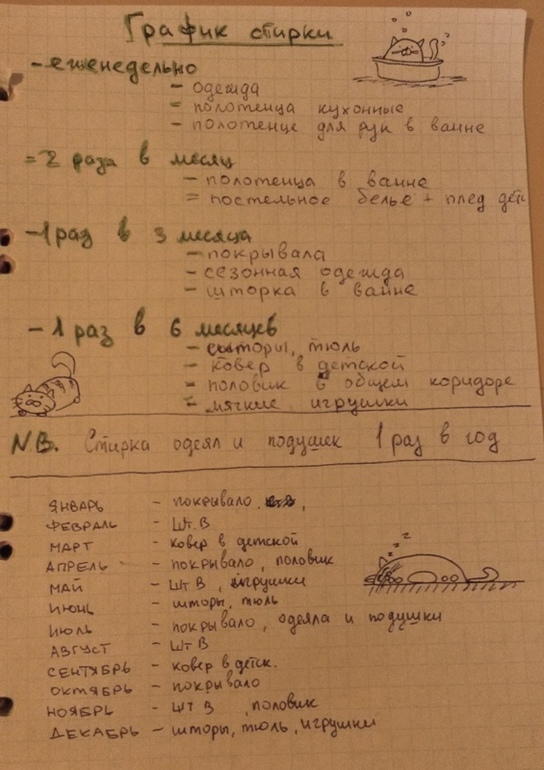 График стирки
- еженедельно
- одежда
= полотенца кухонные
- полотенце для рук в ванне
= 2 раза в месяц
- полотенца в ванне
= постельное белье + плед дет
- 1 раз в 3 месяца
- покрывала
- сезонная одежда
- шторка в ванне
- 1 раз в 6 месяцев
- шторы, тюль
- ковер в детской
- половик в общем коридоре
- мягкие игрушки
N.B. Стирка одеял и подушек 1 раз в год
ЯНВАРЬ - покрывало
ФЕВРАЛЬ - шт. В
МАРТ - ковер в детской
АПРЕЛЬ - покрывало, половик
МАЙ - шт В, игрушки
ИЮНЬ - шторы, тюль
ИЮЛЬ - покрывало, одеяла и подушки
АВГУСТ - шт В
СЕНТЯБРЬ - ковер в детск.
ОКТЯБРЬ - покрывало
НОЯБРЬ - шт В, половик
ДЕКАБРЬ - шторы, тюль, игрушки